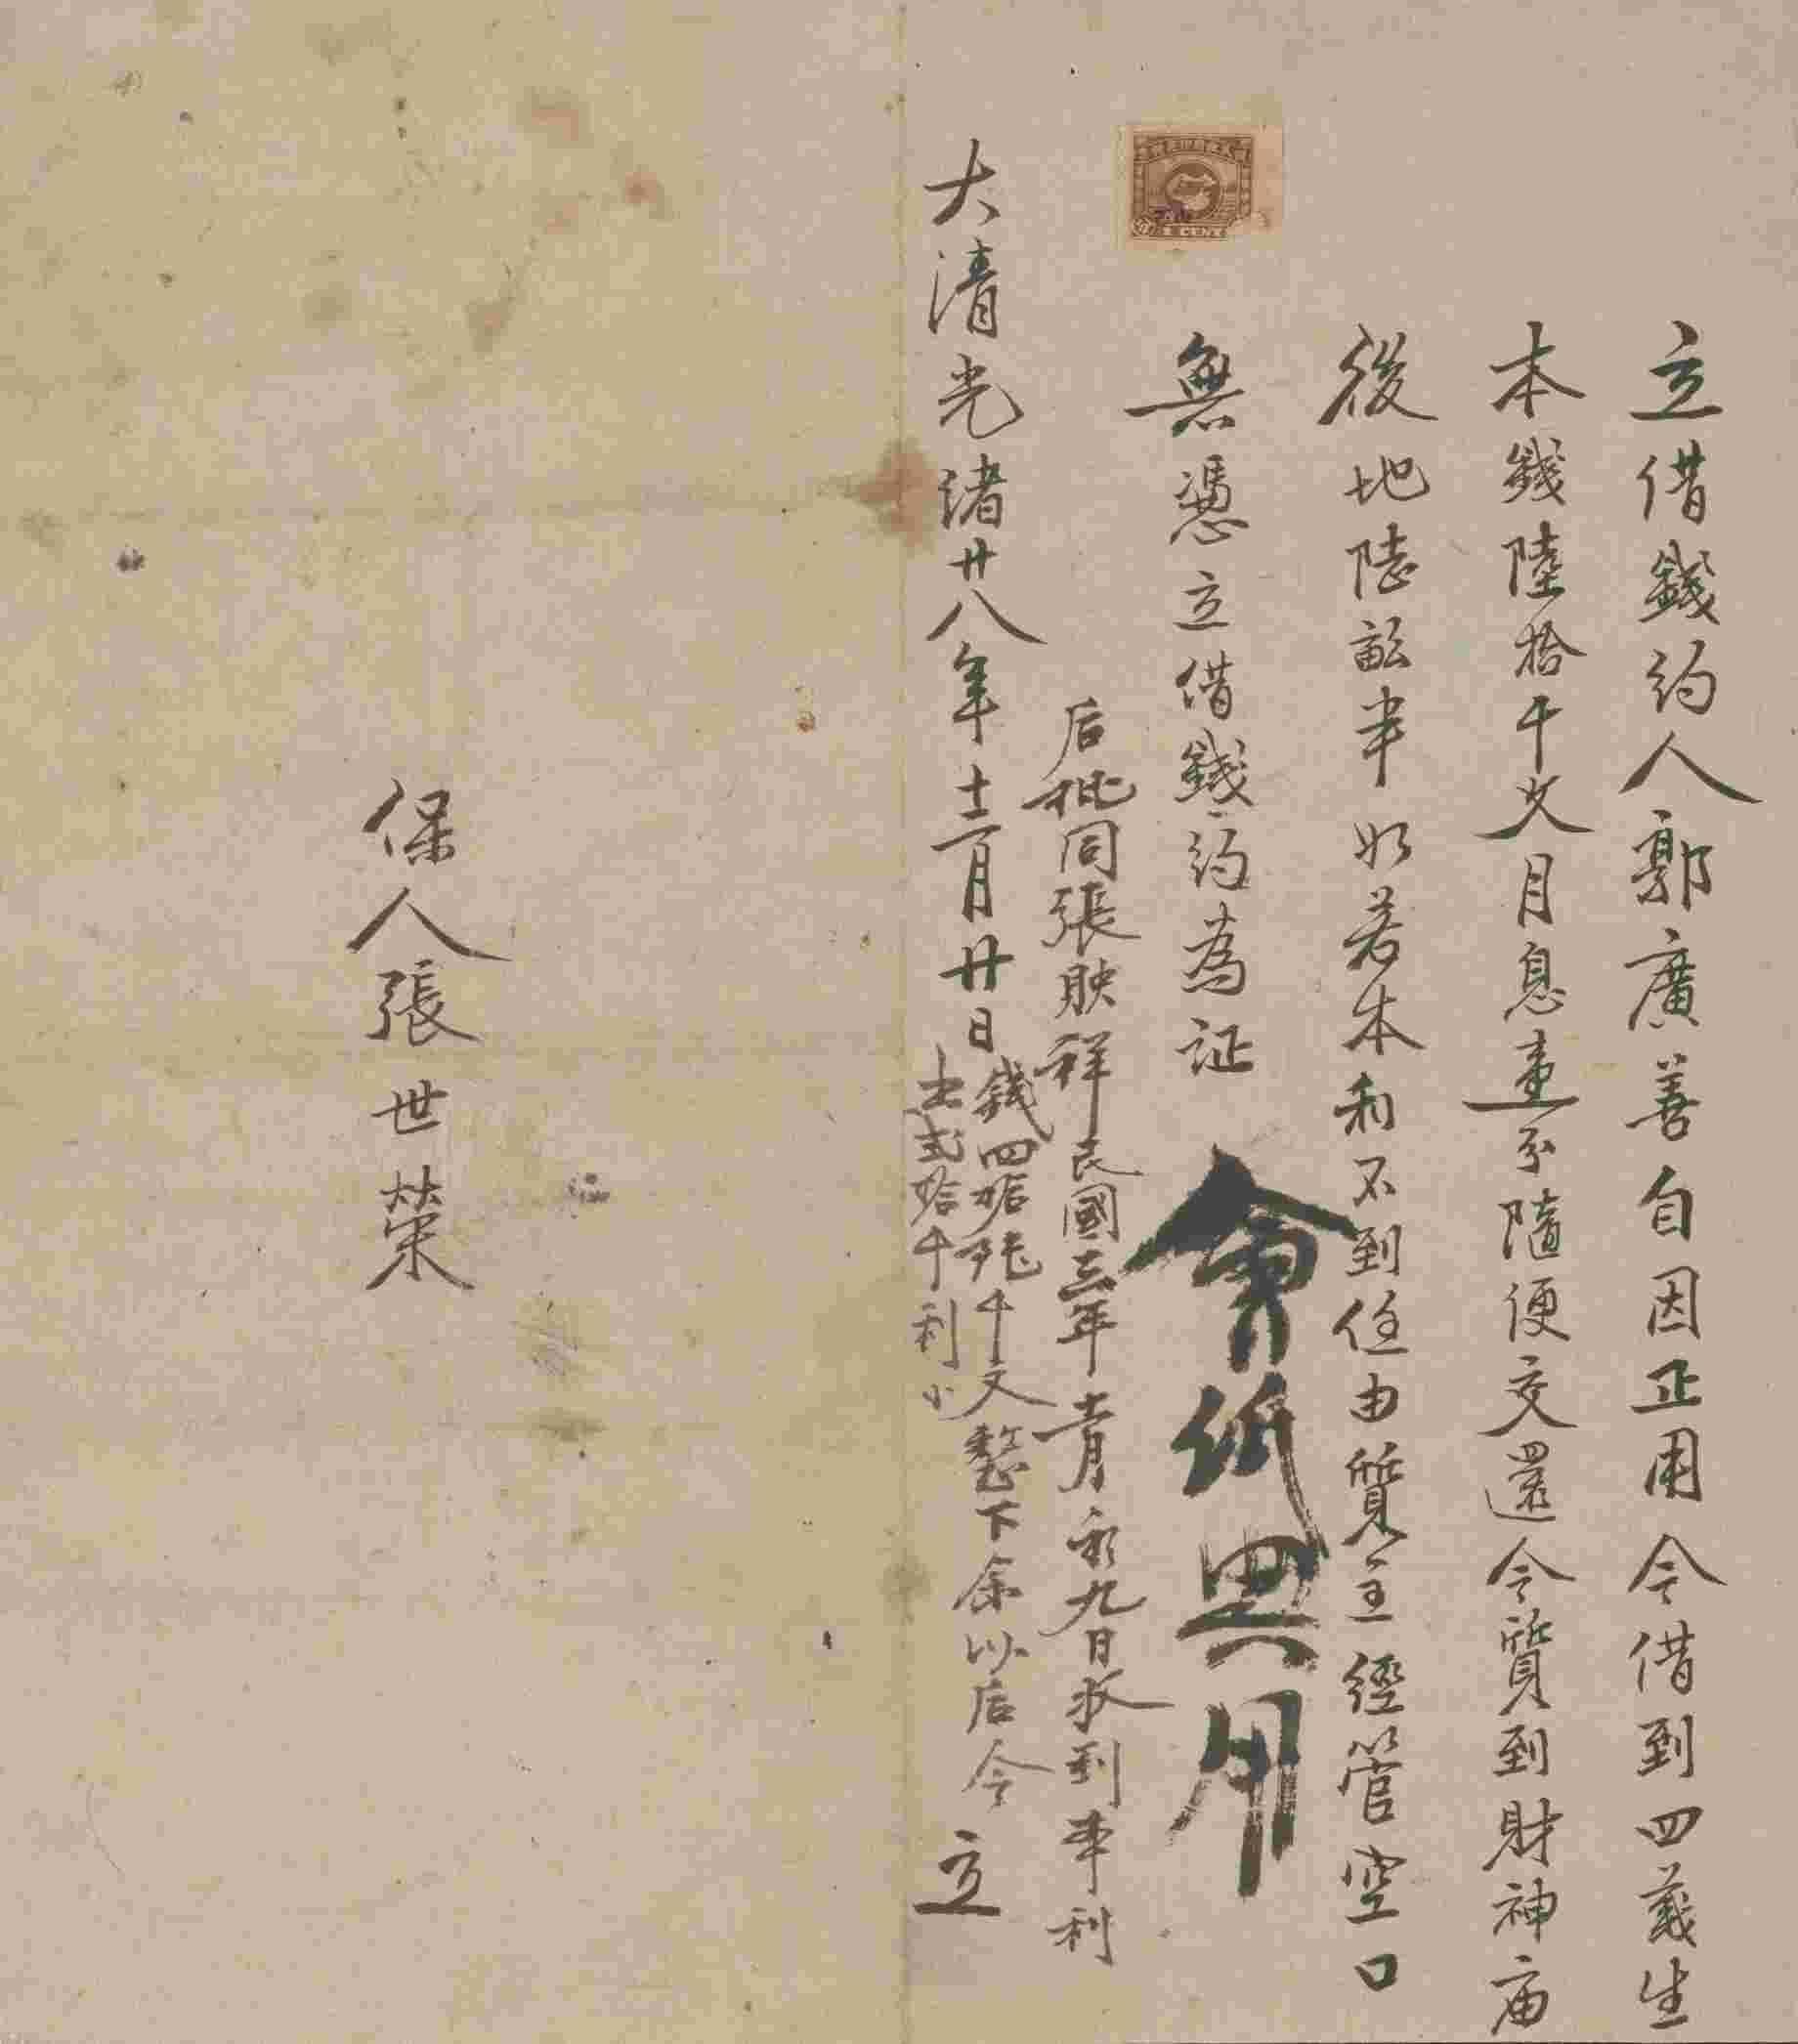 立借錢約人郭廣善自因正用今借到四義生
本錢陸拾千文月息壹分隨便交還今質到財神庙
後地陸畝半如若本利不到任由質主經管空口
無憑立借錢約為证
會紙典用
后批同張映祥民國三年十一月初九日收到本利
錢四拾千文整下余以后今
出式拾千利小
大清光绪廿八年十二月廿日 立
保人張世荣